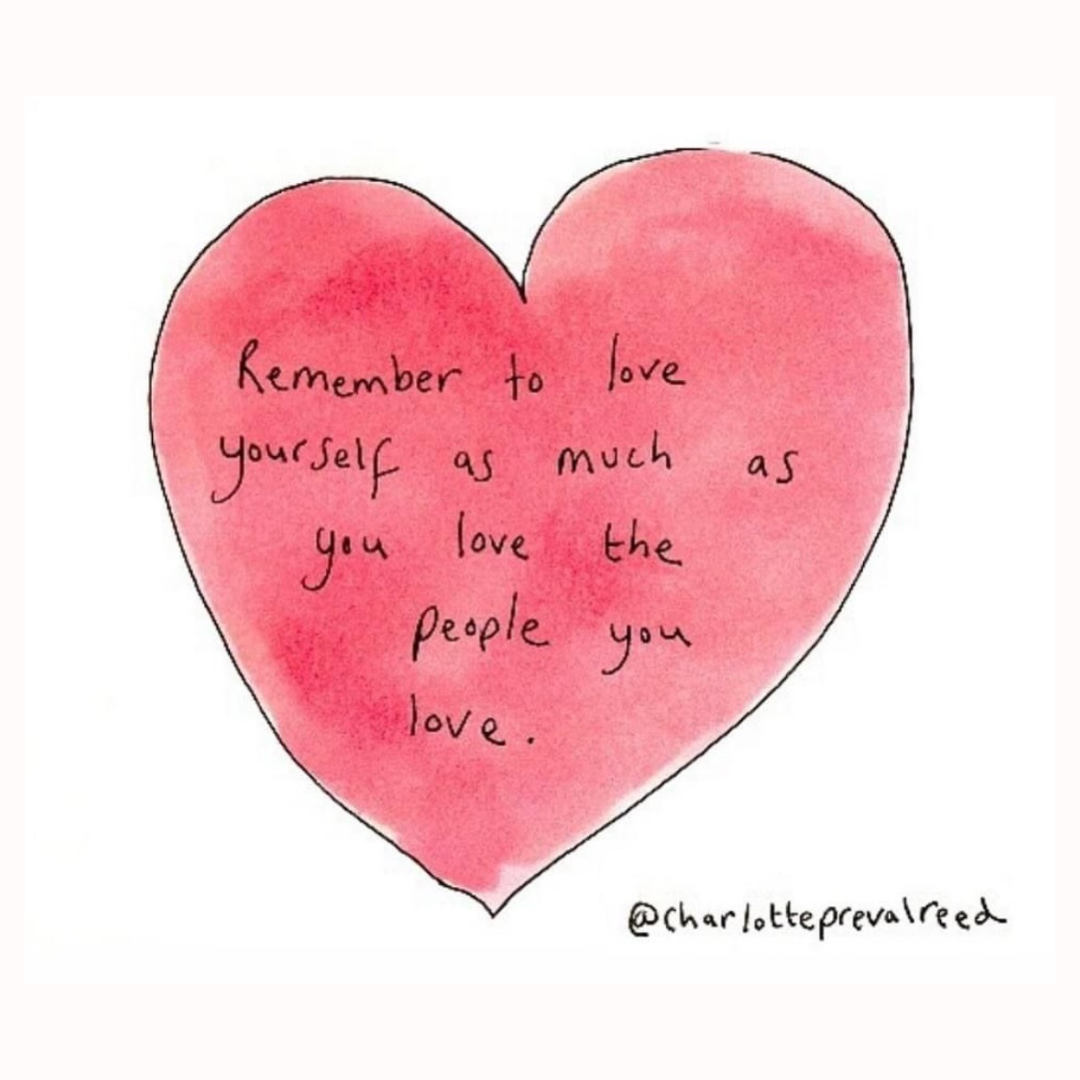 Remember to love
yourself as much as
you love the
people you
love.
@charlotteprevalreed